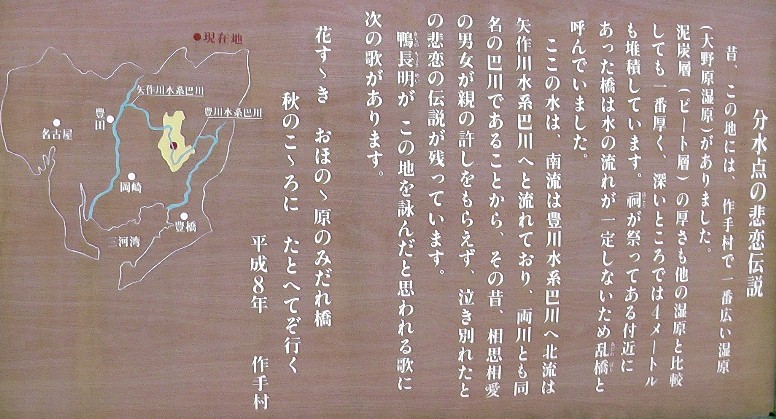 分水点の悲恋伝説
昔、この地には、作手村で一番広い湿原
(大野原湿原)がありました。
泥炭層(ピート層)の厚さも他の湿原と比較
しても一番厚く、深いところでは4メートル
も堆積しています。祠が祭ってある付近に
あった橋は水の流れが一定しないため乱橋と
呼んでいました。
ここの水は、南流は豊川水系巴川へ北流は
矢作川水系巴川へと流れており、両川とも同
名の巴川であることから、その昔、相思相愛
の男女が親の許しをもらえず、泣き別れたと
の悲恋の伝説が残っています。
鴨長明が この地を詠んだと思われる歌に
次の歌があります。
花すゝき おほのゝ原のみだれ橋
秋のこゝろに たとへてぞ行く
平成8年 作手村
●現在地
矢作川水系巴川
豊川水系巴川
豊田
名古屋
岡崎
豊橋
三河湾